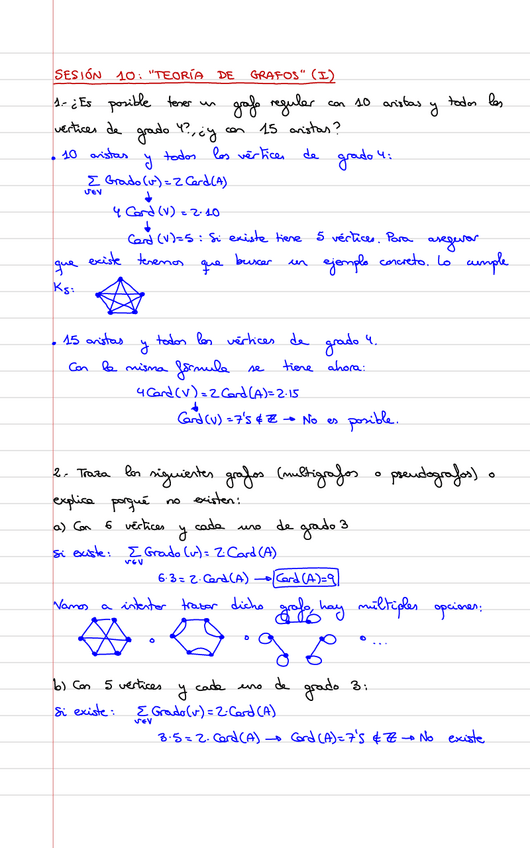 SESIÓN 10: "TEORÍA DE GRAFOS" (I)
1.- ¿Es posible tener un grafo regular con 10 aristas y todos los
vértices de grado 4?, ¿y con 15 aristas?
• 10 aristas y todos los vértices de grado 4:
∑ Grado(v) = 2 Card(A)
v∈V
↓
4 Card(V) = 2·10
↓
Card(V)=5 : Si existe tiene 5 vértices. Para asegurar
que existe tenemos que buscar un ejemplo concreto. Lo cumple
K5:
• 15 aristas y todos los vértices de grado 4.
Con la misma fórmula se tiene ahora:
4Card(V) = 2Card(A) = 2·15
↓
Card(V) = 7'5 ∉ ℤ → No es posible.
2.- Traza los siguientes grafos (multigrafos o pseudografos) o
explica porqué no existen:
a) Con 6 vértices y cada uno de grado 3
Si existe: ∑ Grado(v) = 2·Card(A)
v∈V
6·3 = 2·Card(A) → Card(A)=9
Vamos a intentar trazar dicho grafo, hay múltiples opciones:
o o o ...
b) Con 5 vértices y cada uno de grado 3:
Si existe: ∑ Grado(v) = 2·Card(A)
v∈V
3·5 = 2·Card(A) → Card(A) = 7'5 ∉ ℤ → No existe